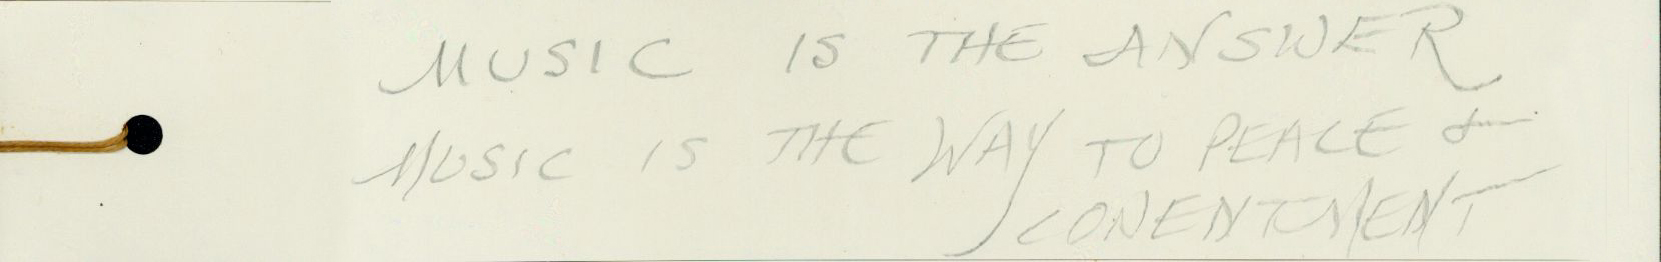 MUSIC IS THE ANSWER
MUSIC IS THE WAY TO PEACE &
CONENTMENT